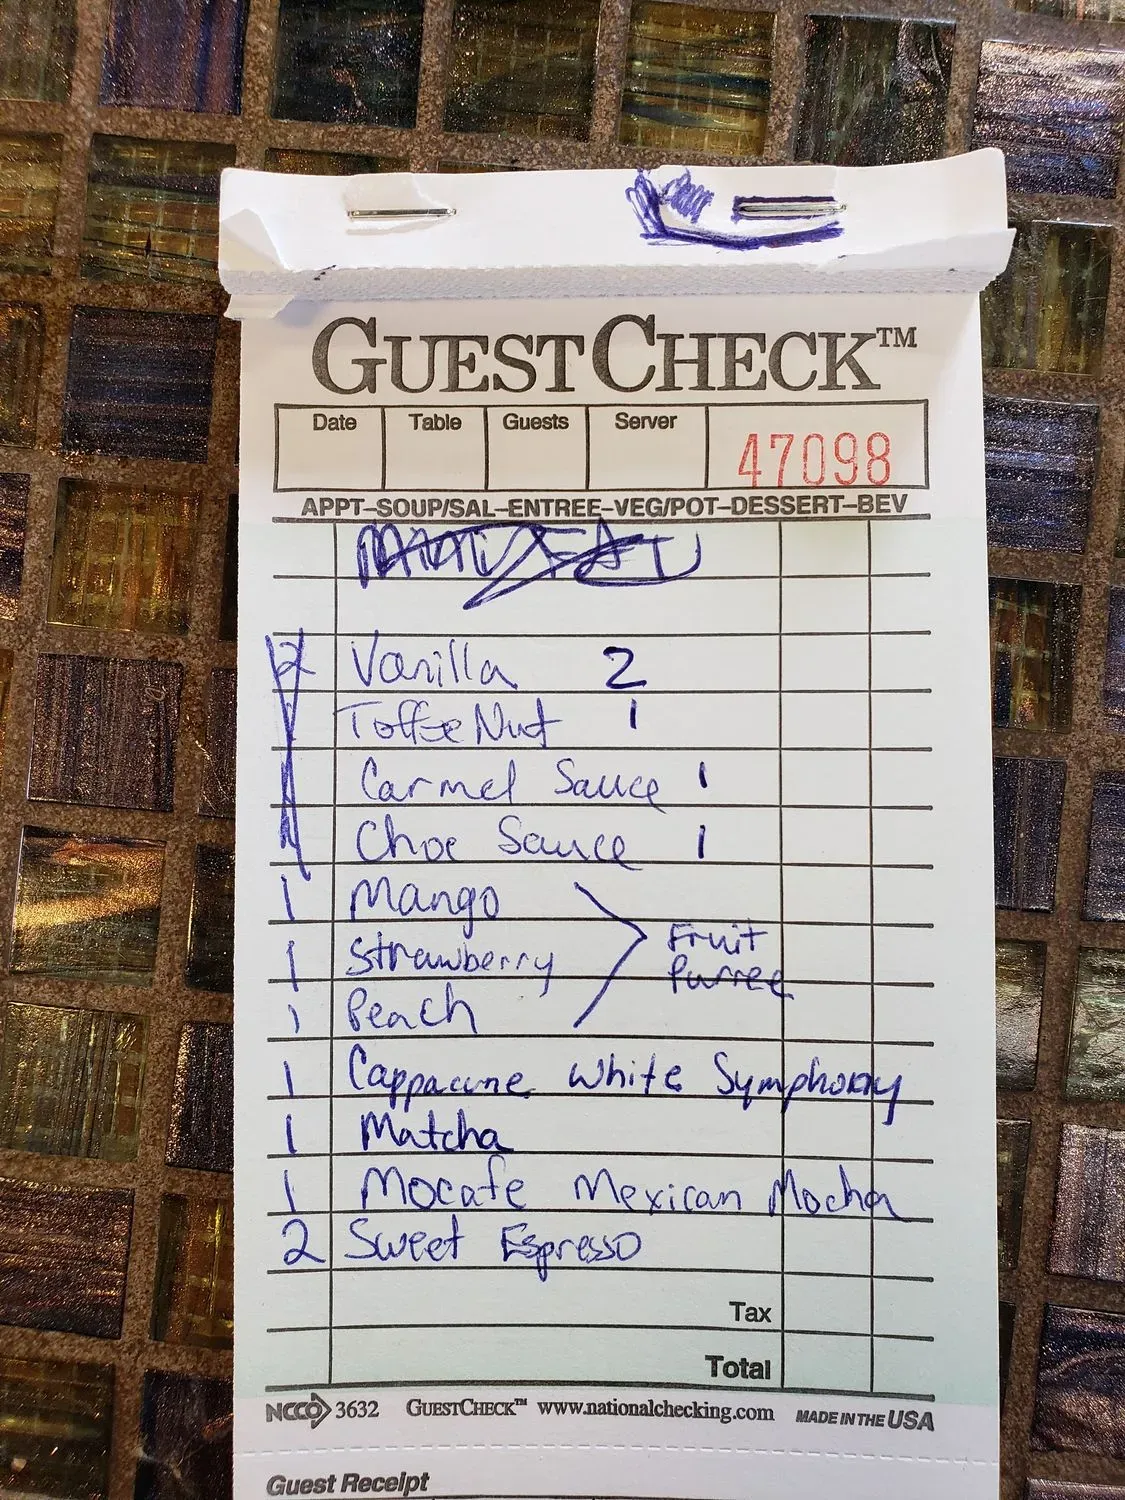 GUESTCHECK™
Date Table Guests Server 47098
APPT–SOUP/SAL–ENTREE–VEG/POT–DESSERT–BEV
2 Vanilla 2
Toffee Nut 1
Carmel Sauce 1
Choc Sauce 1
1 Mango
1 Strawberry
Fruit
Purree
1 Peach
1 Cappacine White Symphony
1 Matcha
1 Mocafe Mexican Mocha
2 Sweet Espresso
Tax
Total
NCCO 3632 GUESTCHECK™ www.nationalchecking.com MADE IN THE USA
Guest Receipt